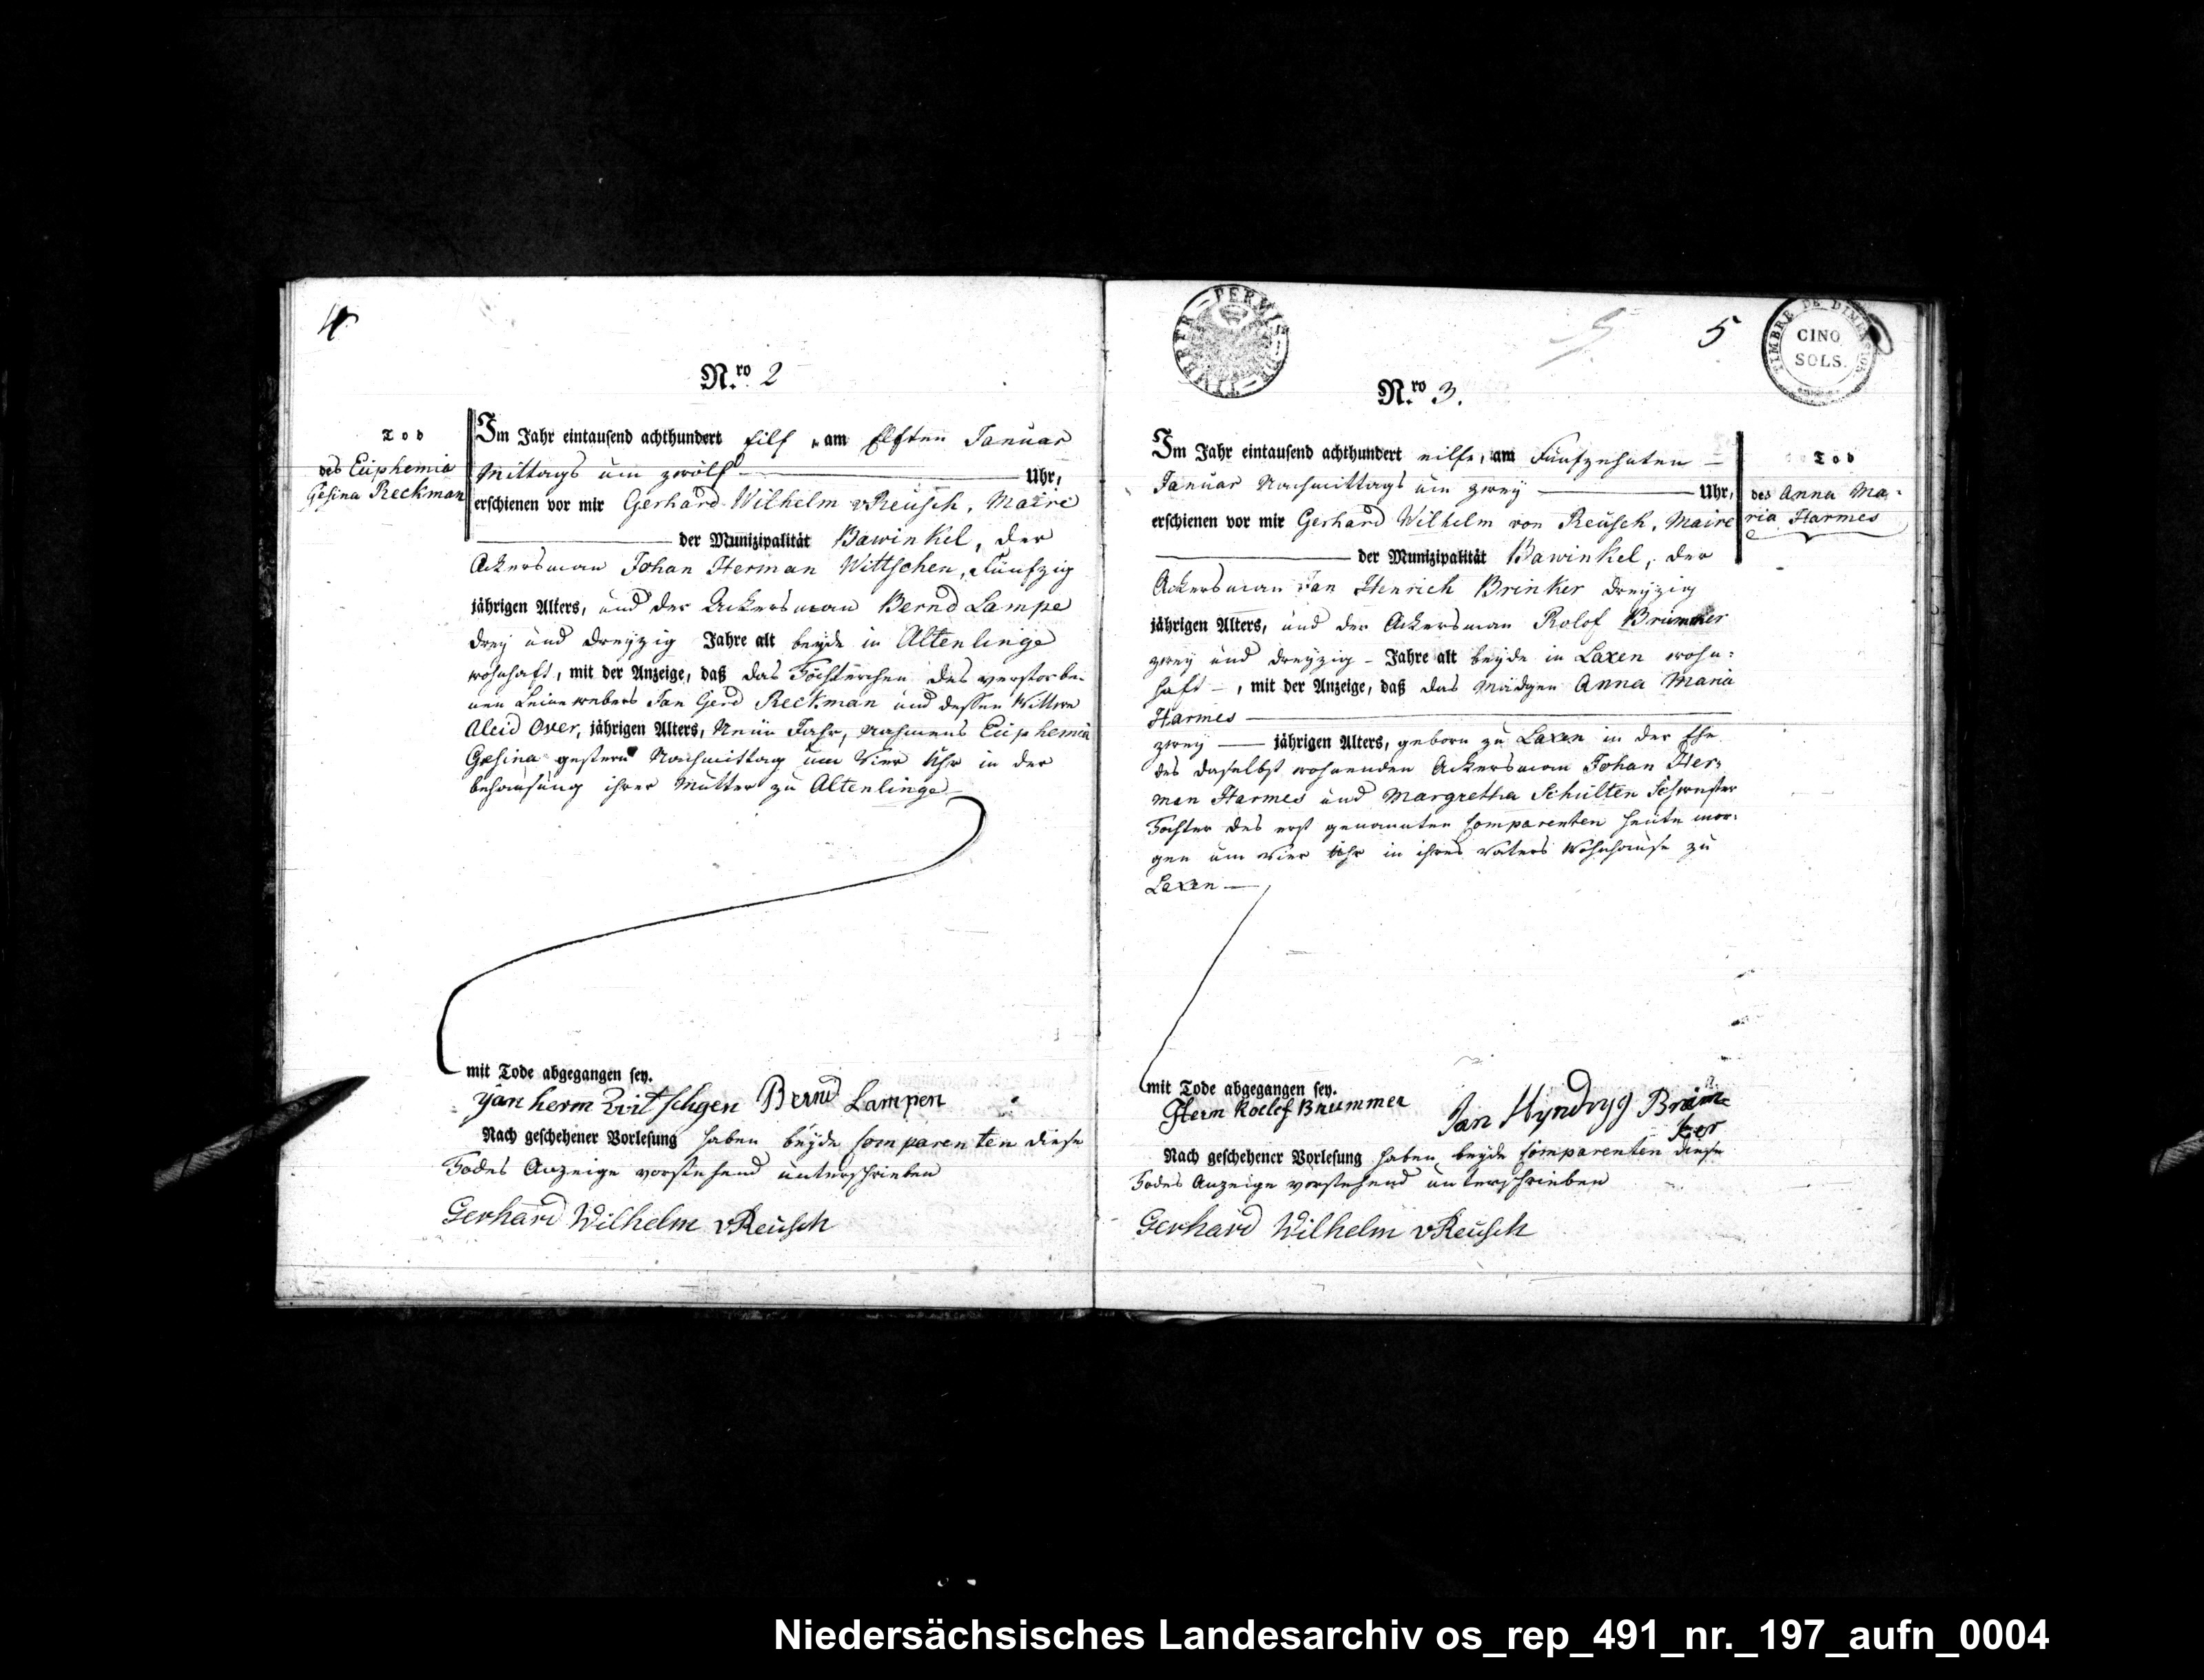 4
Nro 2
Tod
des Euphemia
Gesina Reckman
Im Jahr eintausend achthundert eilf, am Elften Januar
Mittags um zwölf Uhr,
erschienen vor mir Gerhard Wilhelm vReusch, Maire
der Munizipalität Bawinkel, der
Ackersman Johan Herman Wittschen, Fünfzig
jährigen Alters, und der Ackersman Bernd Lampe
drey und dreyzig Jahre alt beyde in Altenlinge
wohnhaft, mit der Anzeige, daß das Töchterchen des verstorbe-
nen Leinewebers Jan Gerd Reckman und dessen Wittwe
Aleid Over, jährigen Alters, Neün Jahr, nahmens Euphemia
Gesina gestern Nachmittag um Vier Uhr in der
behausung ihrer Mutter zu Altenlinge
mit Tode abgegangen sey.
Jan herm Witschgen Bernd Lampen
Nach geschehener Vorlesung haben beyde Comparenten diese
Todes Anzeige vorstehend unterschrieben
Gerhard Wilhelm vReusch
5 5
TIMBRE DE DIMENSION
CINQ
SOLS.
Nro 3.
Im Jahr eintausend achthundert eilfe, am Fünfzehnten
Januar Nachmittags um zwey Uhr,
erschienen vor mir Gerhard Wilhelm von Reusch, Maire
der Munizipalität Bawinkel, der
Ackersman Jan Henrich Brinker dreyzig
jährigen Alters, und der Ackersman Rolof Brümmer
zwey und dreyzig Jahre alt beyde in Laxen wohn:
haft, mit der Anzeige, daß das Mädgen Anna Maria
Harmes
zwey jährigen Alters, geborn zu Laxen in der Ehe
des daselbst wohnenden Ackersman Johan Her:
man Harmes und Margretha Schulten Schwester
Tochter des erst genannten Comparenten heute mor:
gen um vier Uhr in ihres Vaters Wohnhause zu
Lexen
mit Tode abgegangen sey.
Herm Roelef Brummer Jan Hyndryg Brin=
ker
Nach geschehener Vorlesung haben beyde Comparenten diese
Todes Anzeige vorstehend unterschrieben
Gerhard Wilhelm vReusch
Tod
des Anna Ma:
ria Harmes
Niedersächsisches Landesarchiv os_rep_491_nr._197_aufn_0004